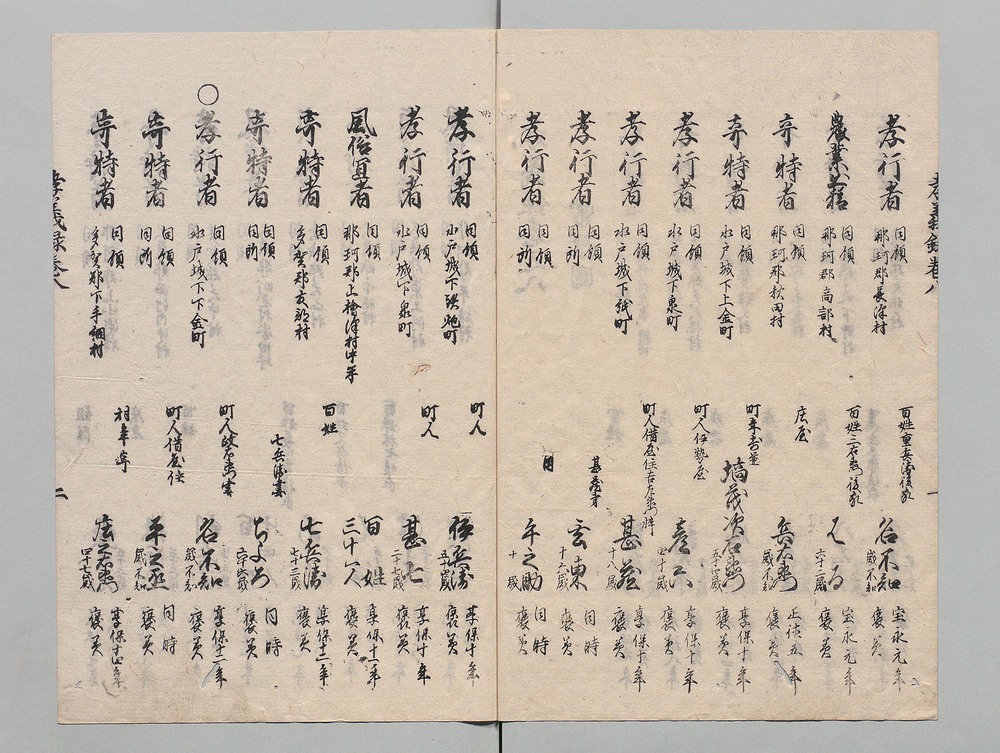 孝義録巻八
孝行者 同領 那珂郡長沢村 百姓重兵衛後家 名不知 歳不知 宝永元年 褒美
農業出精 同領 那珂郡高部村 百姓三右衛門後家 はる 六十二歳 宝永元年 褒美
奇特者 同領 那珂郡秋田村 庄屋 兵右衛門 歳不知 正徳五年 褒美
奇特者 同領 水戸城下上金町 町年寄並 塙茂次右衛門 五十歳 享保十年 褒美
孝行者 同領 水戸城下泉町 町人伊勢屋 彦六 四十歳 享保十年 褒美
孝行者 同領 水戸城下紙町 町人借屋住吉左衛門忰 甚蔵 十八歳 享保十年 褒美
孝行者 同領 同所 甚蔵弟 雲東 十六歳 同時 褒美
孝行者 同領 同所 同 千之助 十歳 同時 褒美
一
孝行者 同領 水戸城下鉄炮町 町人 伊兵衛 享保十年 褒美
孝行者 同領 水戸城下泉町 町人 甚七 二十七歳 享保十年 褒美
風俗宜者 同領 那珂郡上檜沢村 百姓 三十六人 享保十一年 褒美
奇特者 同領 多賀郡友部村 百姓 七兵衛 七十三歳 享保十一年 褒美
奇特者 同領 同所 七兵衛妻 ちよ 同時 褒美
○孝行者 同領 水戸城下下金町 町人 名不知 歳不知 享保十二年 褒美
奇特者 同領 同所 町人借屋住 平之丞 歳不知 同時 褒美
奇特者 同領 多賀郡下手綱村 庄左衛門 四十七歳 享保十四年 褒美
孝義録巻八
二